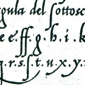 gula del sottosc
e e ff g . b . i . k
q . r . s . ſ . t . u . x . y .